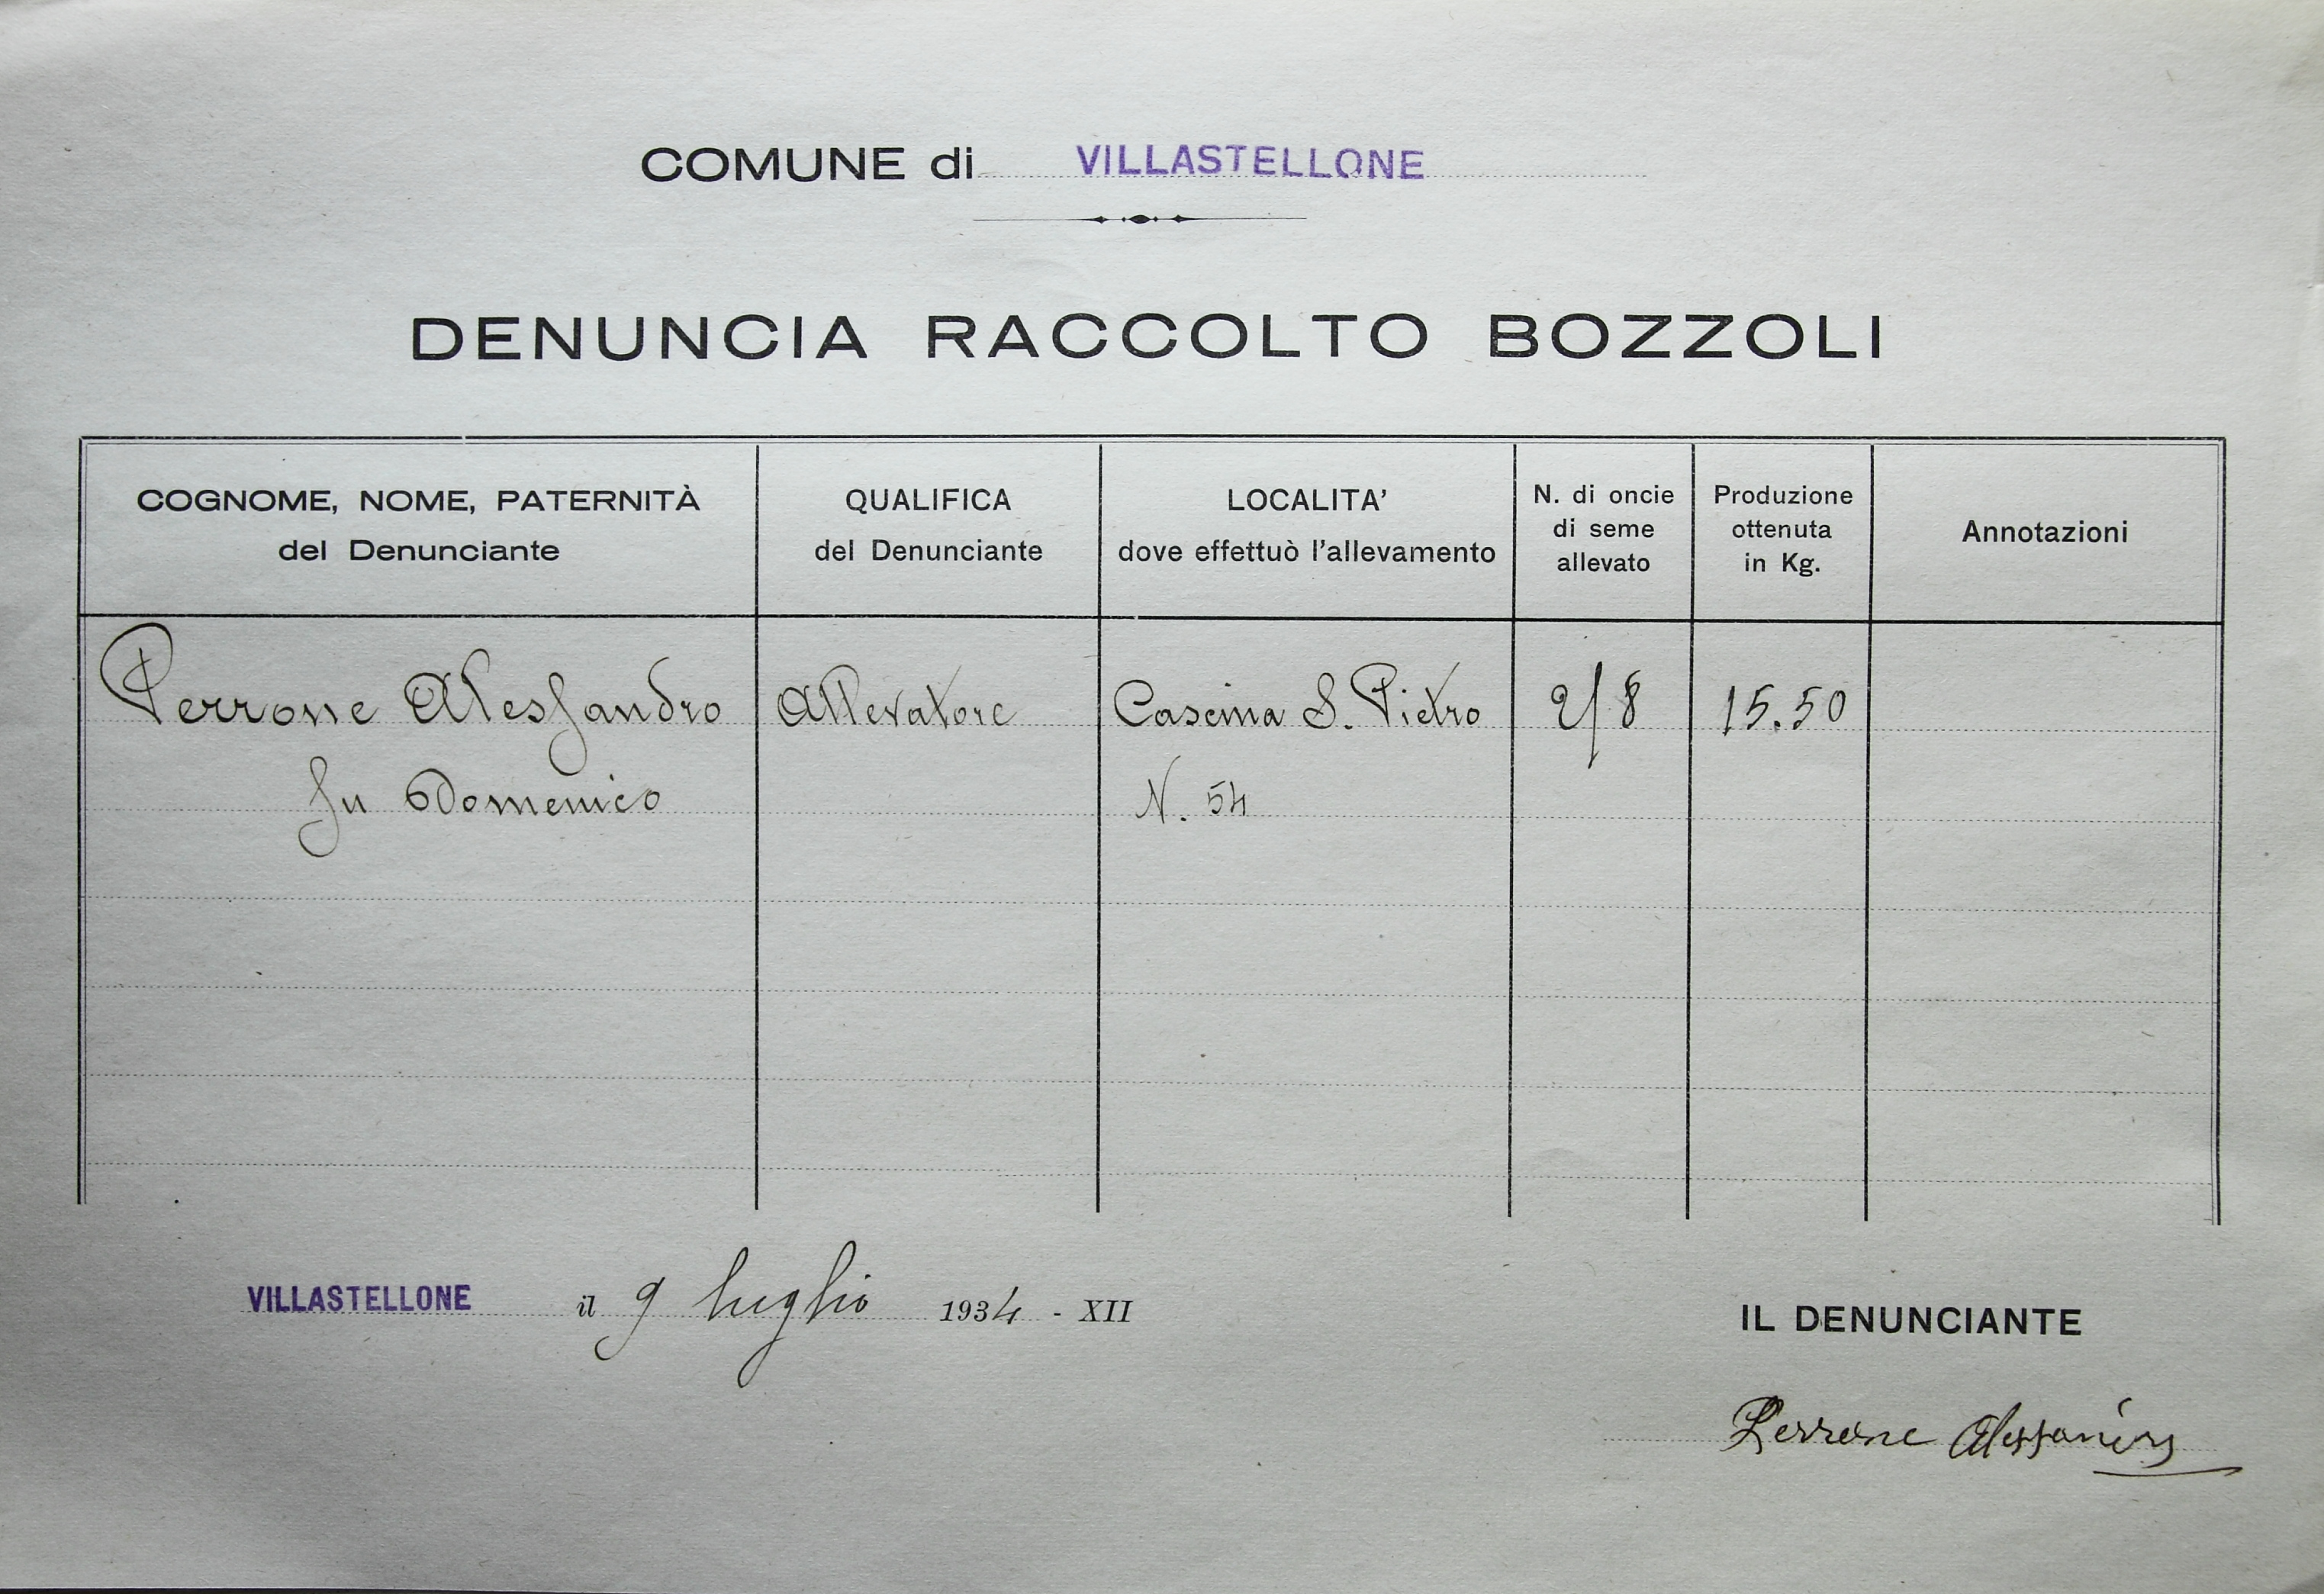 COMUNE di VILLASTELLONE
DENUNCIA RACCOLTO BOZZOLI
COGNOME, NOME, PATERNITÀ
del Denunciante
QUALIFICA
del Denunciante
LOCALITA'
dove effettuò l'allevamento
N. di oncie
di seme
allevato
Produzione
ottenuta
in Kg.
Annotazioni
Perrone Alessandro Allevatore Cascina S. Pietro 2/8 15.50
fu Domenico N. 54
VILLASTELLONE il 9 luglio 1934 - XII
IL DENUNCIANTE
Perrone Alessandro